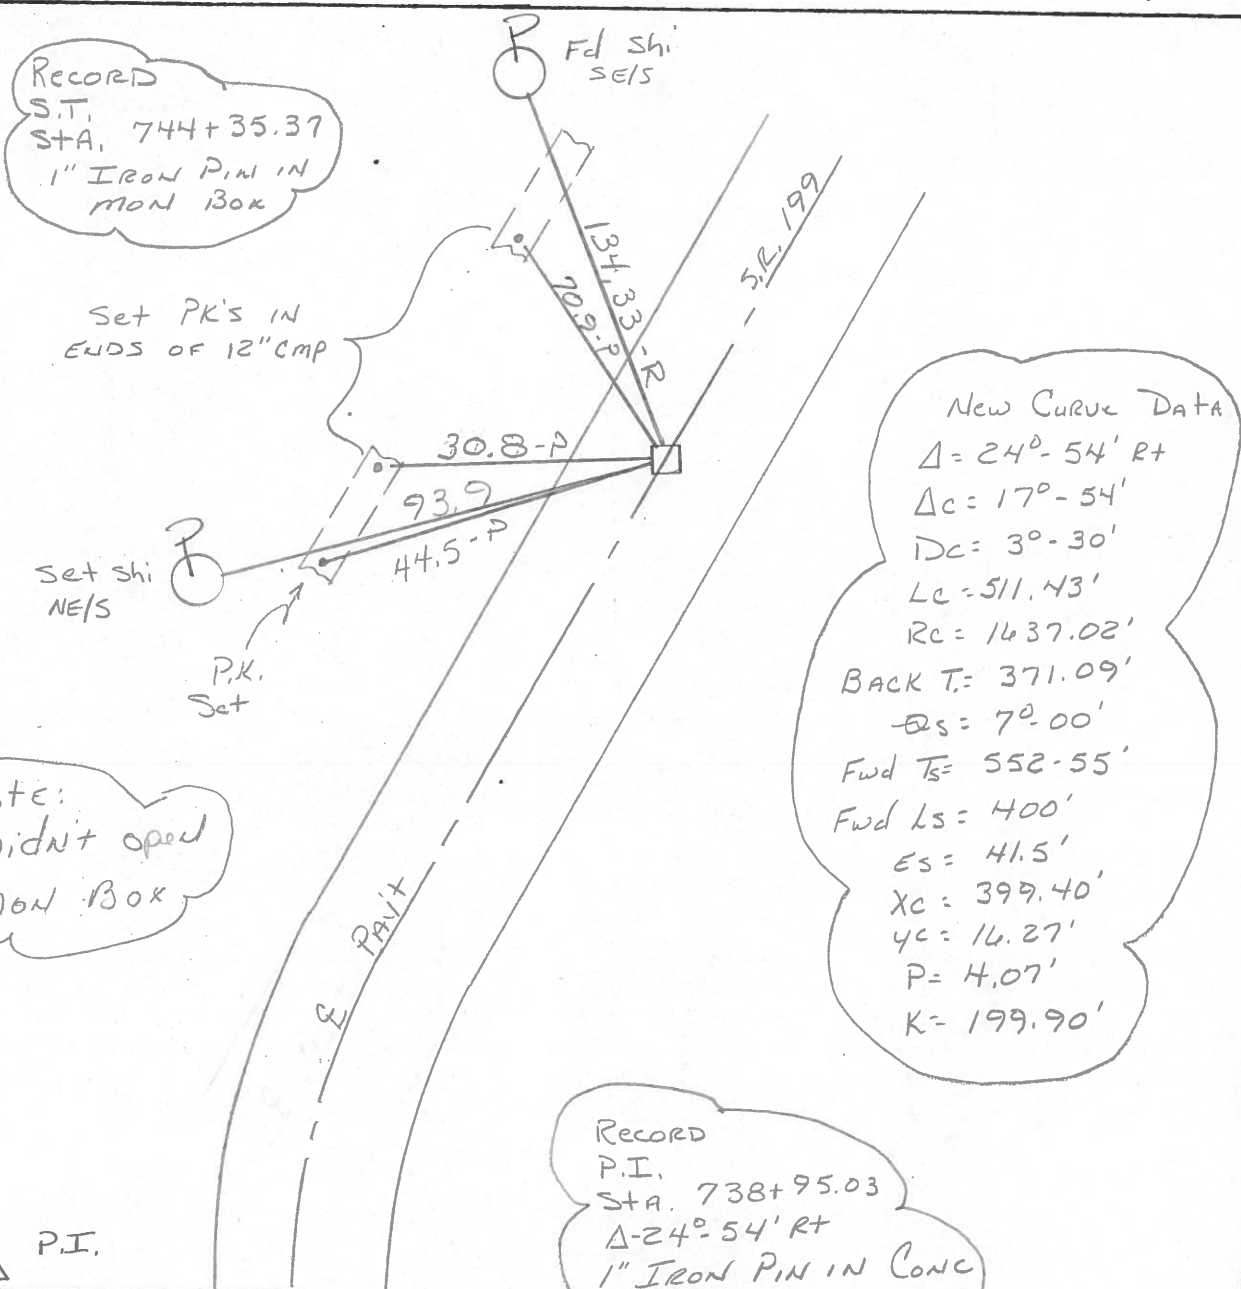 RECORD
S.T.
StA. 744+35.37
1" IRON PIN IN
MON BOX
P
Fd Shi
SE/S
S.R. 199
134.33-R
70.9-P
Set PK'S IN
ENDS OF 12" CMP
30.8-P
93.9
44.5-P
P
Set Shi
NE/S
P.K.
Set
New Curve Data
Δ = 24°-54' Rt
Δc = 17°-54'
Dc = 3°-30'
Lc = 511.43'
Rc = 1637.02'
BACK T. = 371.09'
θs = 7°-00'
Fwd Ts = 552.55'
Fwd Ls = 400'
Es = 41.5'
Xc = 399.40'
yc = 16.27'
P = 4.07'
K = 199.90'
te:
idn't open
on Box
℄ PAV't
RECORD
P.I.
StA. 738+95.03
Δ-24°-54' Rt
1" IRON PIN IN CONC
P.I.